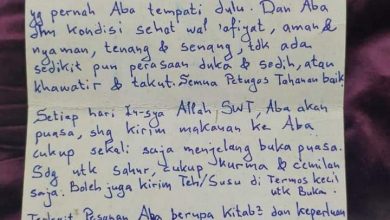 yg pernah Aba tempati dulu. Dan Aba
dlm kondisi sehat wal 'afiyat, aman &
nyaman, tenang & senang, tdk ada
sedikit pun perasaan duka & sedih, atau
khawatir & takut. Semua Petugas Tahanan baik.
Setiap hari In-sya Allah, SWT, Aba akan
puasa, shg kirim makanan ke Aba
cukup sekali saja menjelang buka puasa.
Sdg utk sahur, cukup kurma & cemilan
saja. Boleh juga kirim Teh/Susu di Termos kecil
utk Buka.
Pesanan Aba berupa Kitab2 dan keperluan